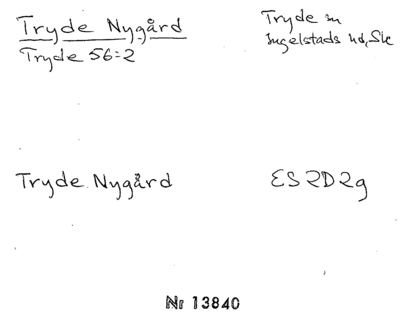 Tryde Nygård
Tryde 56:2
Tryde sn
Ingelstads hd, Skå
Tryde Nygård
ES 2D2g
Nr 13840